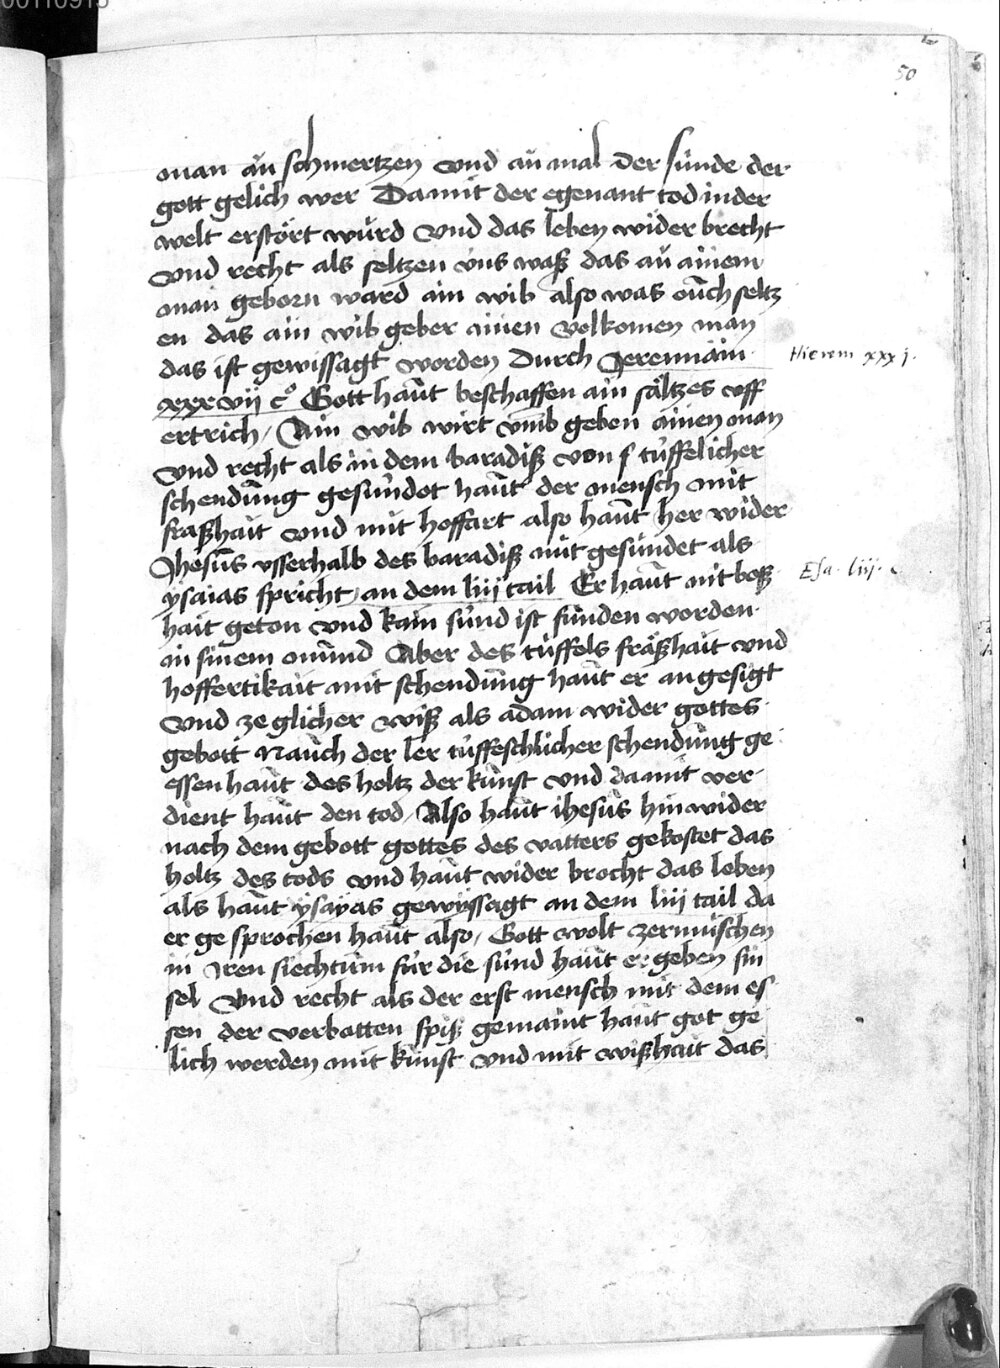 00110913
50
man än schmertzen vnd än mal der sünde der
gott gelich wer Damit der egenant tod in der
welt erstört würd vnd das leben wider brecht
vnd recht als seltzen vns waß das än ainem
man geborn ward ain wib also was öuch seltz
en das ain wib geber ainen volkomen man
das ist gewissagt worden durch Jeremiam
Hierem xxxj.
xxxvij c° Gott haut beschaffen ain sältzes vff
ertrich / Ain wib wirt vmb geben ainen man
vnd recht als in dem baradiß von tüffelicher
schendung gesundet haut der mensch mit
fraßhait vnd mit hoffart also haut her wider
Jhesus vsserhalb des baradiß nit gesundet als
Esa. liij.
ysaias spricht / an dem liij tail Er haut nit boß
hait geton vnd kain sünd ist funden worden
in sinem mund Aber des tüffels fräßhait vnd
hoffertikait mit schendung haut er angesigt
vnd ze glicher wiß als adam wider gottes
gebott nauch der ler tüffeschlicher schendung ge
essen haut des holtz der kunst vnd damit ver
dient haut den tod / Also haut ihesus hinwider
nach dem gebott gottes des vatters gekostet das
holtz des tods vnd haut wider brocht das leben
als haut ysayas gewyssagt an dem liij tail da
er gesprochen haut also / Gott wolt zermüschen
in Iren siechtum für die sünd haut er geben sin
sel Vnd recht als der erst mensch mit dem es
sen der verbatten spiß gemaint haut got ge
lich werden mit kunst vnd mit wißhait das